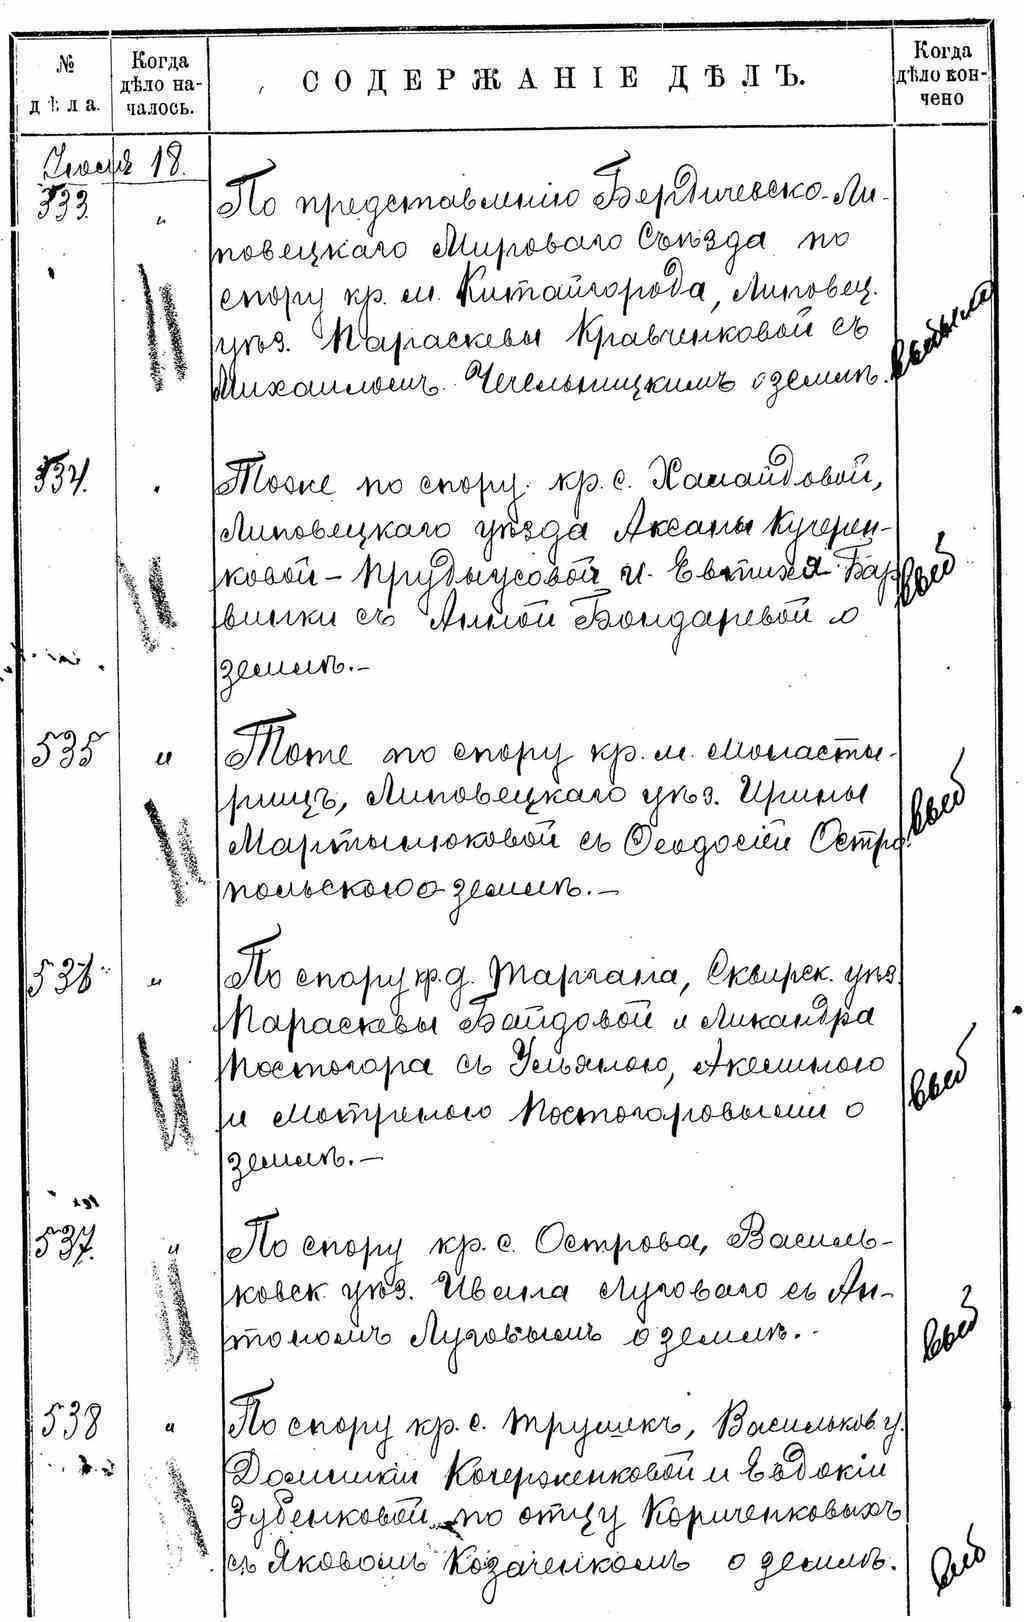 № дѣла.
Когда дѣло на-
чалось.
СОДЕРЖАНІЕ ДѢЛЪ.
Когда
дѣло кон-
чено
Іюля 18.
533. " По представленію Бердичевско-Ли-
повецкаго Мироваго Съѣзда по
спору кр. м. Китайгорода, Липовец.
уѣз. Параскевы Кравченковой съ
Михаиломъ Чечельницкимъ о землѣ. выбыло
534. " Тоже по спору кр. с. Халаидовой,
Липовецкаго уѣзда Аксаны Кучерен-
ковой - Прудыусовой и Евтихія Бар
винки съ Анной Бондаревой о выб
землѣ.-
535 " Тоже по спору кр. м. Монасты-
рищъ, Липовецкаго уѣз. Ирины
Мартынюковой съ Ѳеодосіей Остро выб
польскою о землѣ.-
536 " По спору кр. д. Таргана, Сквирск. уѣз.
Параскевы Байдовой и Никандра
Постогора съ Ульяною, Акелиною выб
и Мотреною Постогоровыми о
землѣ.-
537. " По спору кр. с. Острова, Василь-
ковск. уѣз. Ивана Луговаго съ Ан-
тономъ Луговымъ о землѣ.- выб
538 " По спору кр. с. Трушекъ, Васильков. у.
Домникіи Кочерженковой и Евдокіи
Зубенковой, по отцу Корниенковыхъ
съ Яковомъ Козаченкомъ о землѣ. выб